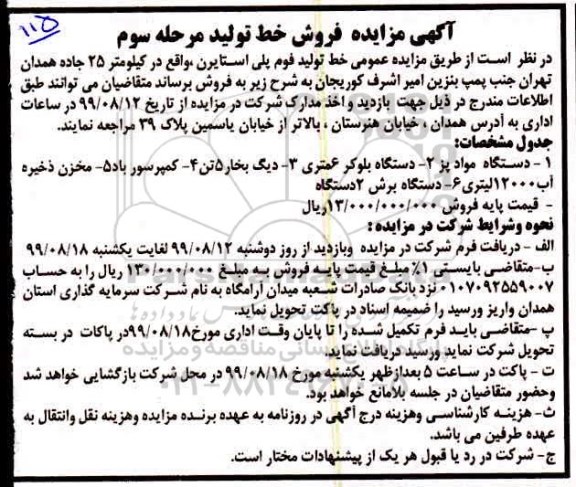 ۱۱۵
آگهی مزایده فروش خط تولید مرحله سوم
در نظر است از طریق مزایده عمومی خط تولید فوم پلی استایرن ،واقع در کیلومتر ۲۵ جاده همدان
تهران جنب پمپ بنزین امیر اشرف کوریجان به شرح زیر به فروش برساند متقاضیان می توانند طبق
اطلاعات مندرج در ذیل جهت بازدید و اخذ مدارک شرکت در مزایده از تاریخ ۹۹/۰۸/۱۲ در ساعات
اداری به آدرس همدان ، خیابان هنرستان ، بالاتر از خیابان یاسمین پلاک ۳۹ مراجعه نمایند.
جدول مشخصات:
۱- دستگاه مواد پز ۲- دستگاه بلوکر ۶متری ۳- دیگ بخار۵تن۴- کمپرسور باد۵- مخزن ذخیره
آب۱۲۰۰۰لیتری۶- دستگاه برش ۲دستگاه
- قیمت پایه فروش ۱۳/۰۰۰/۰۰۰/۰۰۰ریال
نحوه وشرایط شرکت در مزایده :
الف - دریافت فرم شرکت در مزایده وبازدید از روز دوشنبه ۹۹/۰۸/۱۲ لغایت یکشنبه ۹۹/۰۸/۱۸
ب-متقاضی بایستی ۱٪ مبلغ قیمت پایه فروش به مبلغ ۱۳۰/۰۰۰/۰۰۰ ریال را به حساب
۰۱۰۷۰۹۲۵۵۹۰۰۷ نزد بانک صادرات شعبه میدان آرامگاه به نام شرکت سرمایه گذاری استان
همدان واریز ورسید را ضمیمه اسناد در پاکت تحویل نماید.
پ-متقاضی باید فرم تکمیل شده را تا پایان وقت اداری مورخ۹۹/۰۸/۱۸در پاکات در بسته
تحویل شرکت نماید ورسید دریافت نماید.
ت - پاکت در ساعت ۵ بعدازظهر یکشنبه مورخ ۹۹/۰۸/۱۸ در محل شرکت بازگشایی خواهد شد
وحضور متقاضیان در جلسه بلامانع خواهد بود.
ث- هزینه کارشناسی وهزینه درج آگهی در روزنامه به عهده برنده مزایده وهزینه نقل وانتقال به
عهده طرفین می باشد.
ج- شرکت در رد یا قبول هر یک از پیشنهادات مختار است.